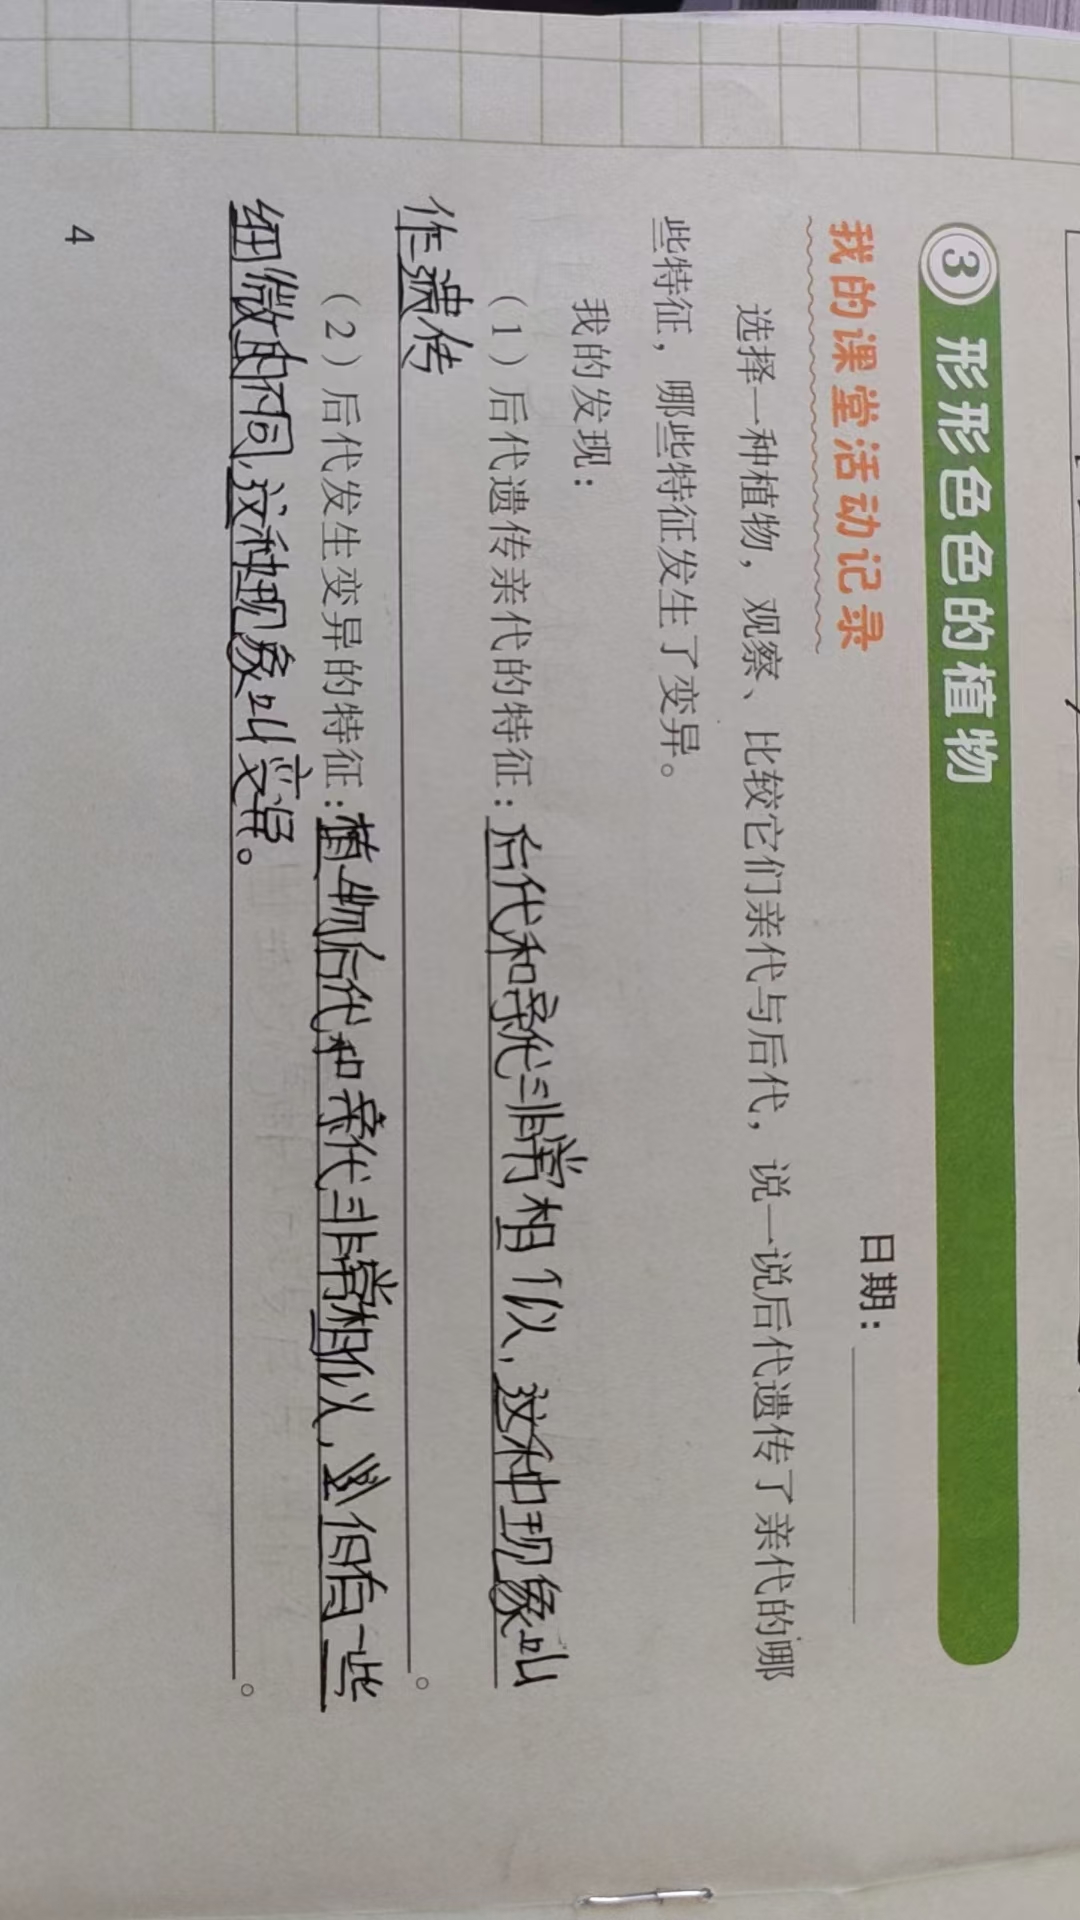 ③ 形形色色的植物
我的课堂活动记录
日期：
选择一种植物，观察、比较它们亲代与后代，说一说后代遗传了亲代的哪
些特征，哪些特征发生了变异。
我的发现：
（1）后代遗传亲代的特征：后代和亲代非常相似，这种现象叫
作遗传。
（2）后代发生变异的特征：植物后代和亲代非常相似，但有一些
细微的不同，这种现象叫变异。
。
4